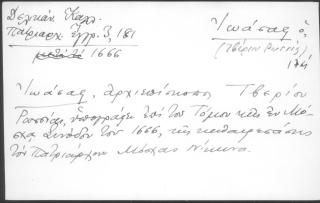 Δελικάν. Καλλ.
Πατριαρχ. Ἔγγρ. 3, 181
μετὰ τὸ 1666
Ἰωάσαφ ὁ,
(Τβερίου Ρωσσίας)
Ἰωάσαφ, ἀρχιεπίσκοπος Τβερίου
Ρωσσίας, ὑπογράφει ἐπὶ τοῦ Τόμου τῆς ἐν Μό-
σχᾳ Συνόδου τοῦ 1666, τῆς καθαιρεσάσης
τὸν Πατριάρχην Μόσχας Νίκωνα.